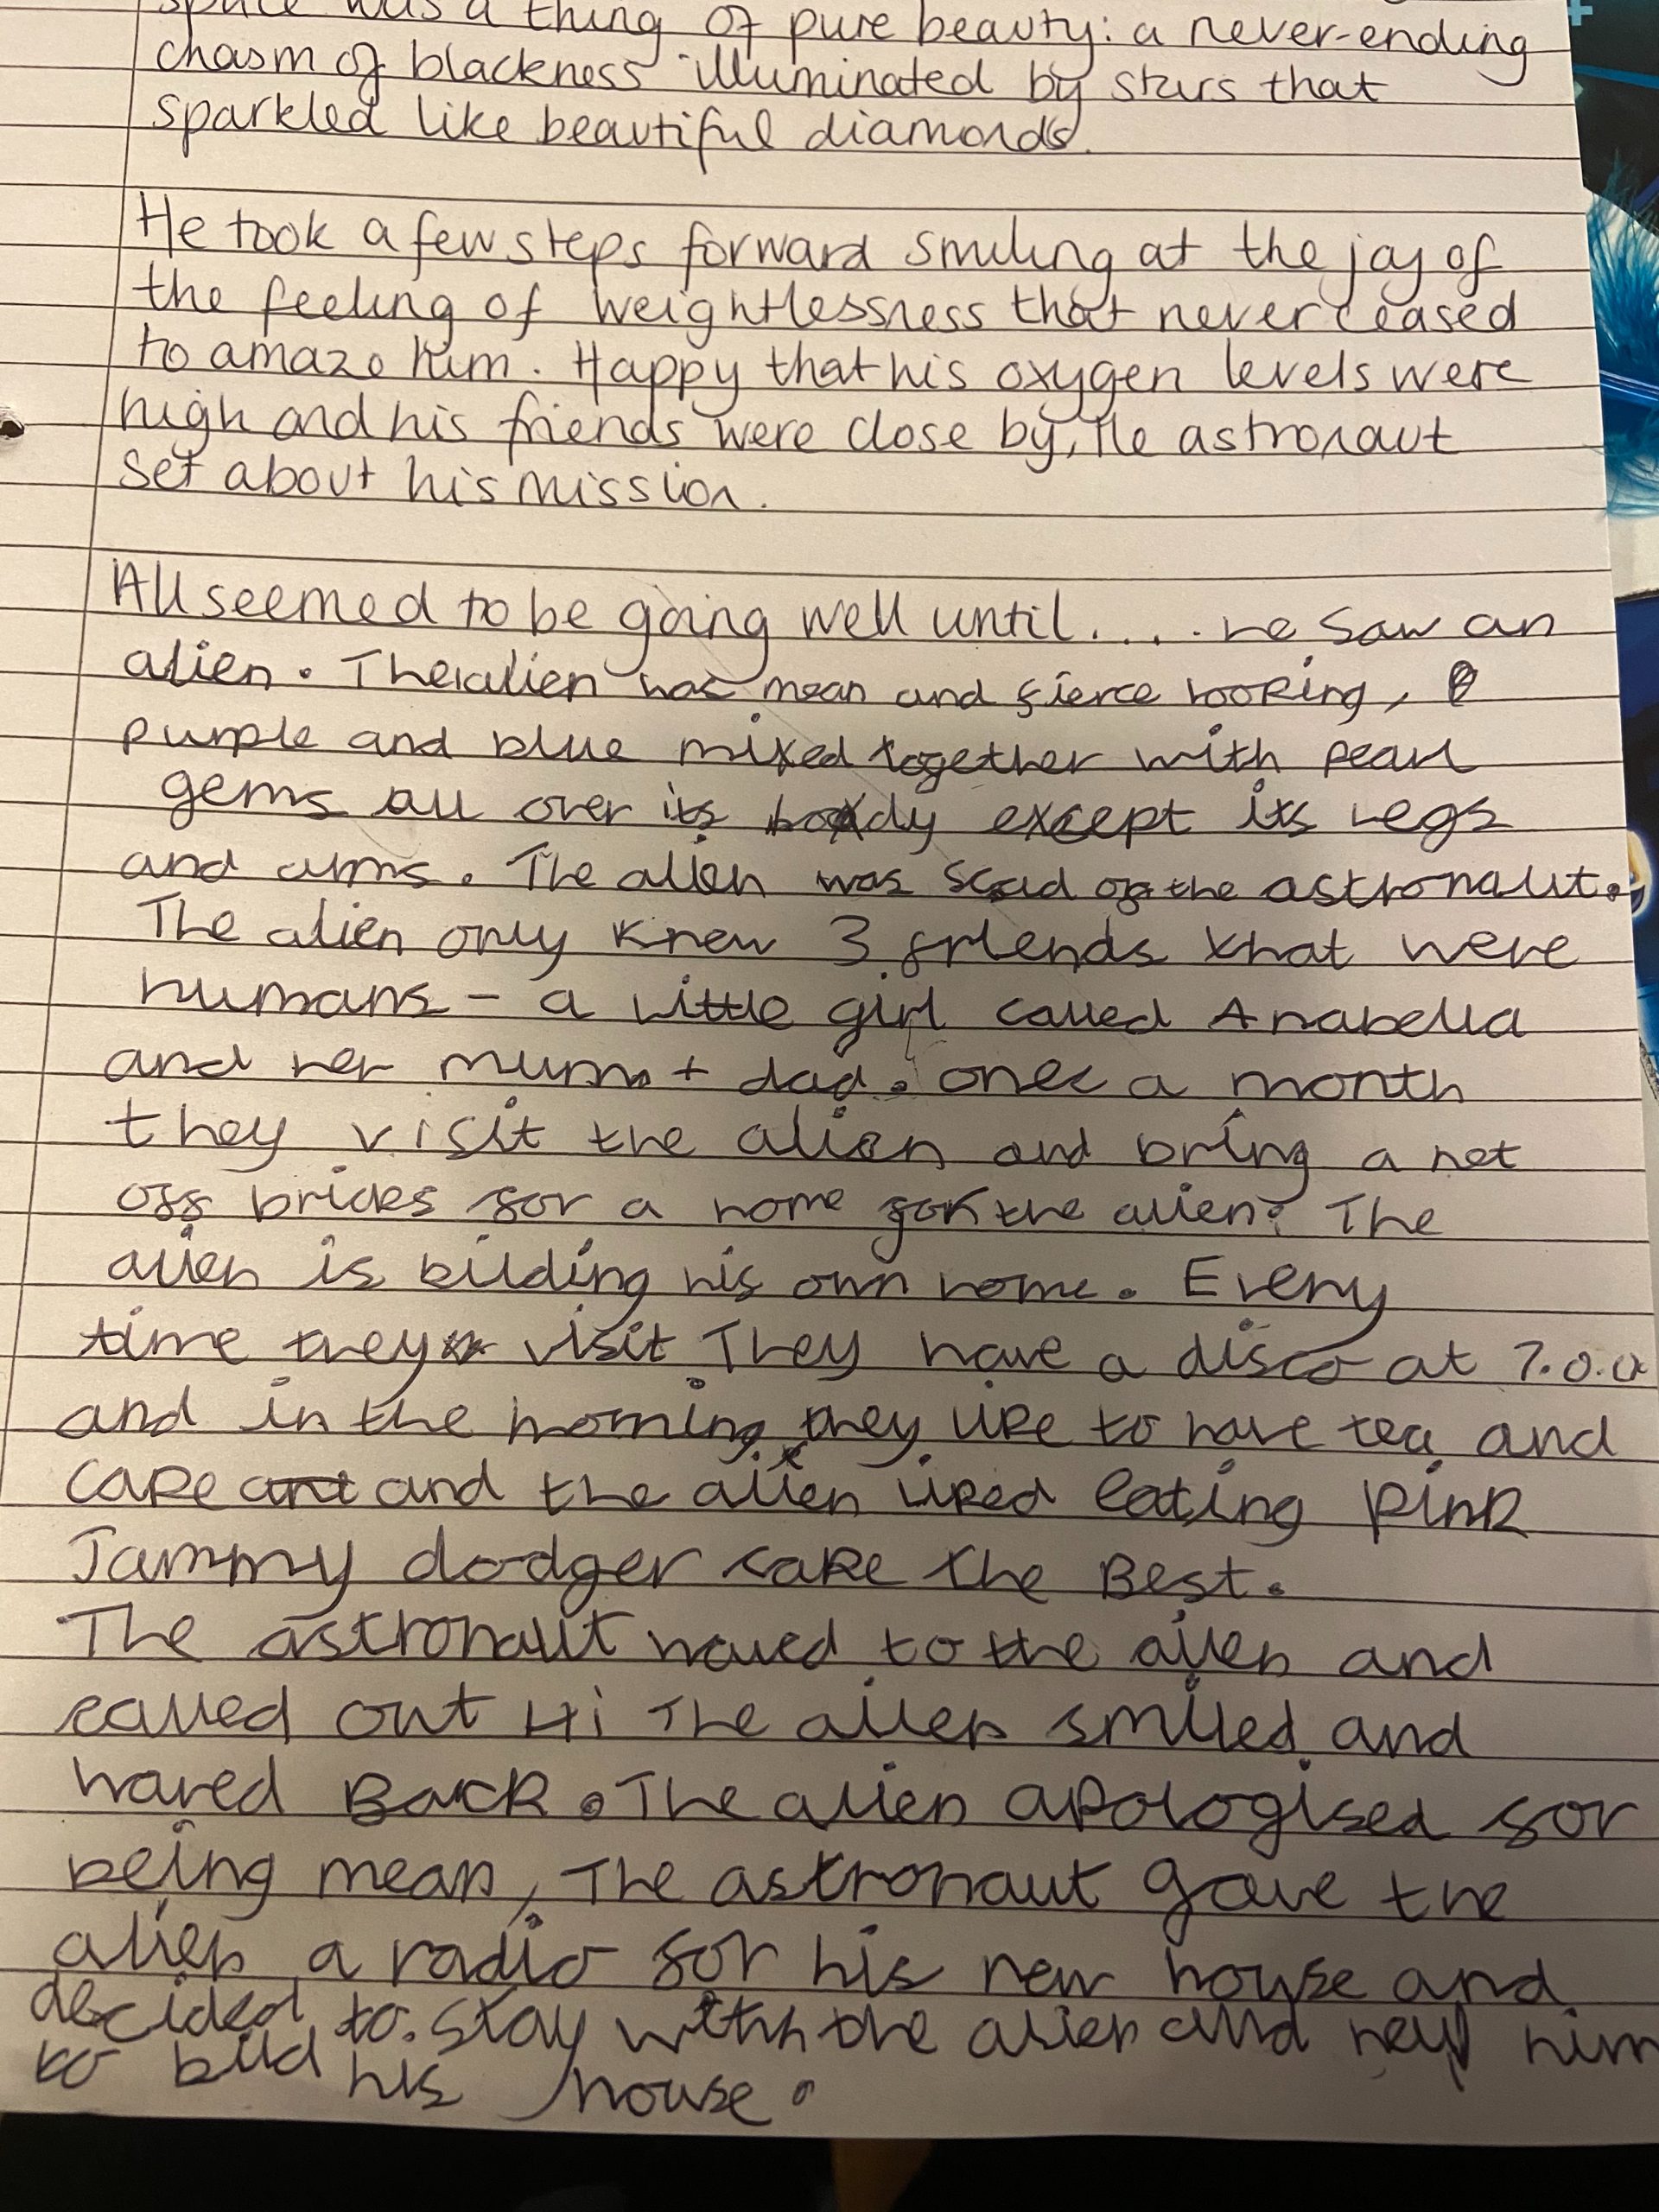 space was a thing of pure beauty: a never-ending
chasm of blackness illuminated by stars that
sparkled like beautiful diamonds.
He took a few steps forward smiling at the joy of
the feeling of weightlessness that never ceased
to amaze him. Happy that his oxygen levels were
high and his friends were close by, the astronaut
set about his mission.
All seemed to be going well until.... he saw an
alien. The alien was mean and fierce looking,
purple and blue mixed together with pearl
gems all over its body except its legs
and arms. The alien was scad of the astronaut.
The alien only knew 3 friends that were
humans - a little girl called Anabella
and her mum + dad. once a month
they visit the alien and bring a net
off brickes for a home for the alien. The
alien is bilding his own home. Every
time they visit They have a disco at 7.0.0
and in the morning they like to have tea and
cake and the alien liked eating pink
Jammy dodger cake the Best.
The astronaut waved to the alien and
called out Hi The alien smiled and
waved Back. The alien apologised for
being mean, The astronaut gave the
alien a radio for his new house and
decided to stay with the alien and help him
to bild his house.